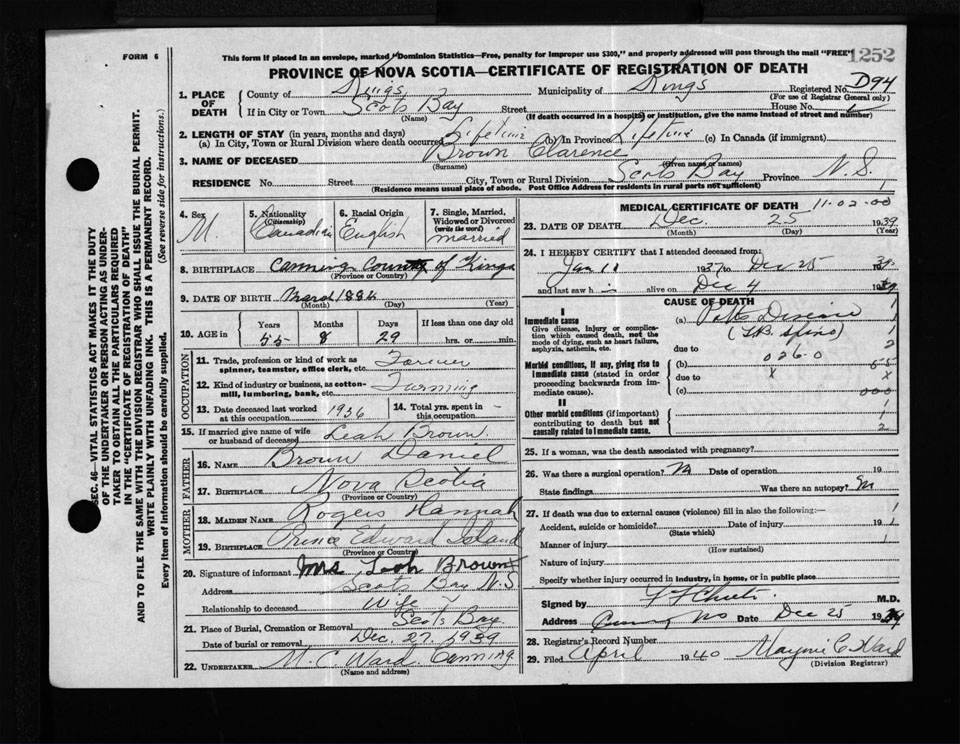 FORM 6
This form if placed in an envelope, marked "Dominion Statistics—Free, penalty for improper use $300," and properly addressed will pass through the mail "FREE"
1252
PROVINCE OF NOVA SCOTIA—CERTIFICATE OF REGISTRATION OF DEATH
D94
1. PLACE OF DEATH
County of Kings
Municipality of Kings
Registered No.
(For use of Registrar General only)
If in City or Town Scots Bay Street House No.
(Name) (If death occurred in a hospital or institution, give the name instead of street and number)
2. LENGTH OF STAY (in years, months and days)
(a) In City, Town or Rural Division where death occurred Lifetime (b) In Province Lifetime (c) In Canada (if immigrant)
3. NAME OF DECEASED Brown Clarence
(Surname) (Given name or names)
RESIDENCE No. Street City, Town or Rural Division Scots Bay Province N.S.
(Residence means usual place of abode. Post Office Address for residents in rural parts not sufficient) 1
4. Sex M
5. Nationality (Citizenship) Canadian
6. Racial Origin English
7. Single, Married, Widowed or Divorced (write the word) married
8. BIRTHPLACE Canning County of Kings
(Province or Country)
9. DATE OF BIRTH March 1884
(Month) (Day) (Year)
10. AGE in Years Months Days If less than one day old
55 8 29 hrs. or min.
OCCUPATION
11. Trade, profession or kind of work as spinner, teamster, office clerk, etc. Farmer
12. Kind of industry or business, as cotton-mill, lumbering, bank, etc. Farming
13. Date deceased last worked at this occupation 1936
14. Total yrs. spent in this occupation –
15. If married give name of wife or husband of deceased Leah Brown
FATHER
16. NAME Brown Daniel
17. BIRTHPLACE Nova Scotia
(Province or Country)
MOTHER
18. MAIDEN NAME Rogers Hannah
19. BIRTHPLACE Prince Edward Island
(Province or Country)
20. Signature of informant Mrs Leah Brown
Address Scots Bay N.S
Relationship to deceased Wife
21. Place of Burial, Cremation or Removal Scots Bay
Date of burial or removal Dec. 27, 1939
22. UNDERTAKER M. C. Ward. Canning
(Name and address)
MEDICAL CERTIFICATE OF DEATH 11-02-00
23. DATE OF DEATH Dec 25 1939
(Month) (Day) (Year)
24. I HEREBY CERTIFY that I attended deceased from:
Jan 11 1937 to Dec 25 1939
and last saw h alive on Dec 4 19
CAUSE OF DEATH
I
Immediate cause
Give disease, injury or complication which caused death, not the mode of dying, such as heart failure, asphyxia, asthenia, etc.
(a) Potts Disease 1
(T.B. Spine) 1
due to 2
Morbid conditions, if any, giving rise to immediate cause (stated in order proceeding backwards from immediate cause).
(b) 026-0 5-5
due to x X
(c) 000
II 1
Other morbid conditions (if important) contributing to death but not causally related to immediate cause. 1
2
25. If a woman, was the death associated with pregnancy?
26. Was there a surgical operation? Date of operation 19
State findings Was there an autopsy?
27. If death was due to external causes (violence) fill in also the following:— 1
Accident, suicide or homicide? Date of injury 19 1
(State which)
Manner of injury 1
(How sustained)
Nature of injury
Specify whether injury occurred in industry, in home, or in public place
Signed by M.D.
Address Date Dec 25 19
28. Registrar's Record Number
29. Filed April 1940
(Division Registrar)
SEC. 46—VITAL STATISTICS ACT MAKES IT THE DUTY
OF THE UNDERTAKER OR PERSON ACTING AS UNDER-
TAKER TO OBTAIN ALL THE PARTICULARS REQUIRED
IN THE "CERTIFICATE OF REGISTRATION OF DEATH"
AND TO FILE THE SAME WITH THE DIVISION REGISTRAR WHO SHALL ISSUE THE BURIAL PERMIT.
WRITE PLAINLY WITH UNFADING INK. THIS IS A PERMANENT RECORD.
Every item of information should be carefully supplied. (See reverse side for instructions.)